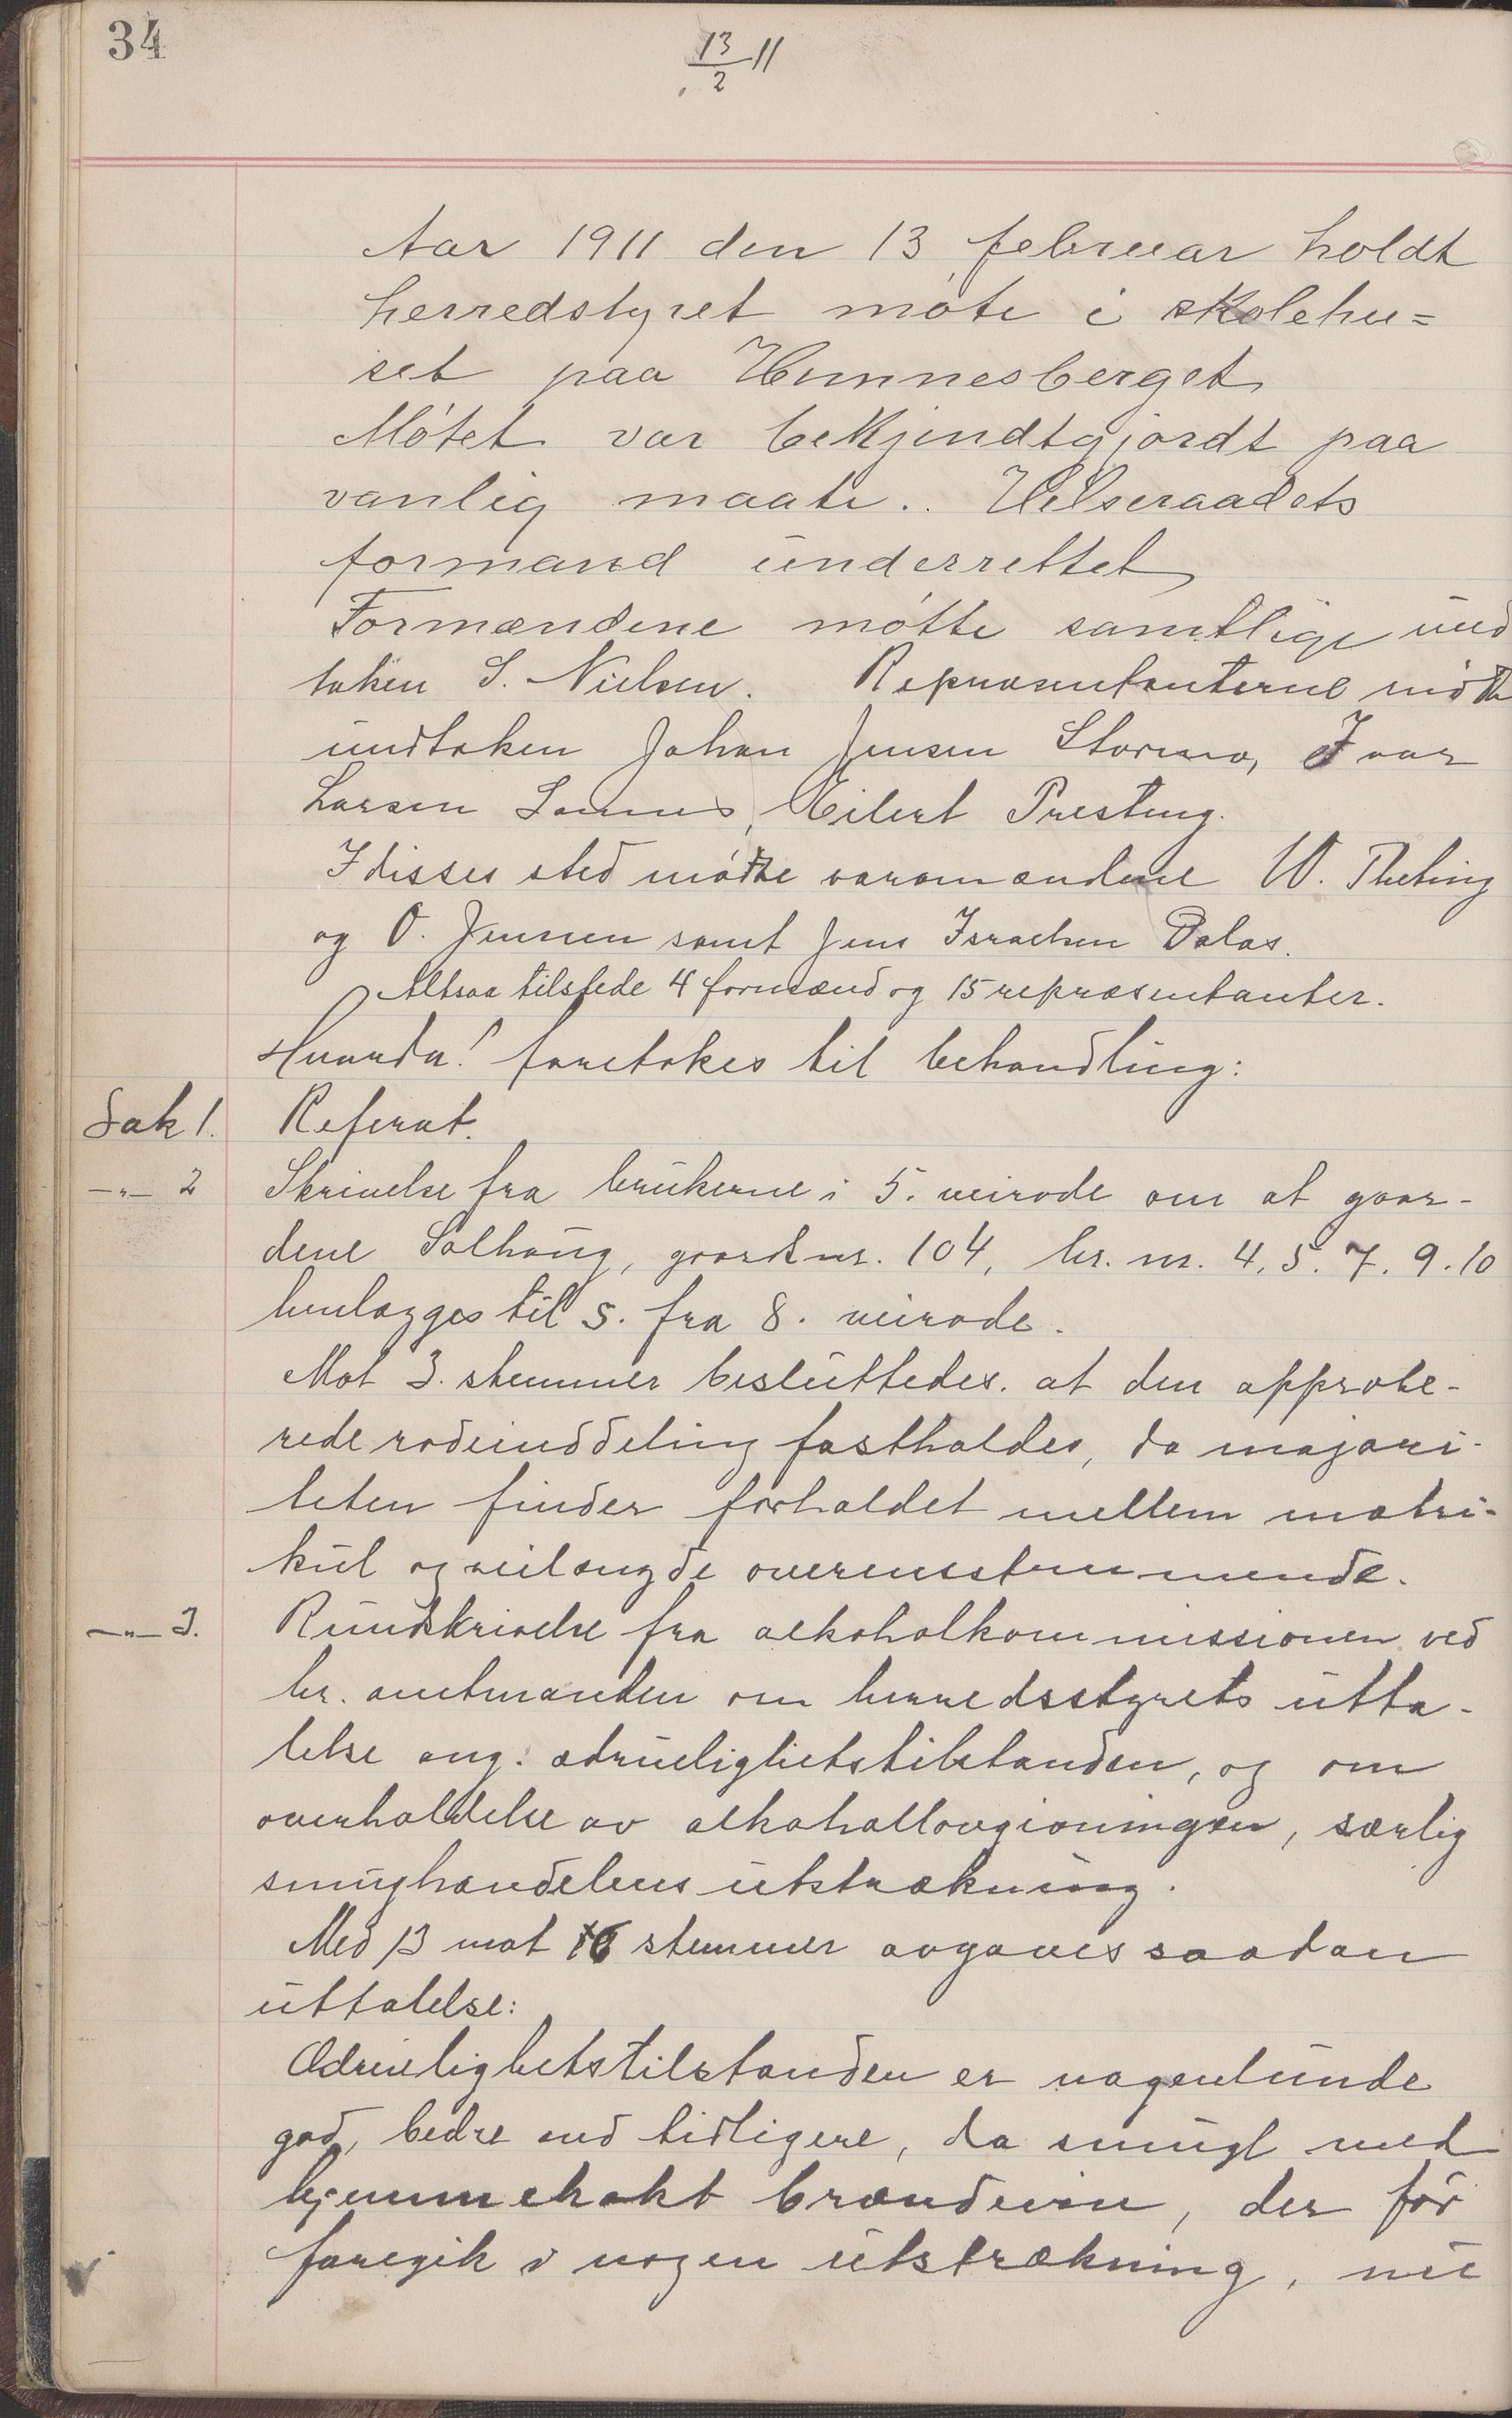 34
13/2 11
Aar 1911 den 13 februar holdt
herredstyret møte i skolehu=
set paa Hemnesberget
Møtet var bekjendtgjordt paa
vanlig maate. Helseraadets
formand underrettet
Formændene møtte samtlige und
taken S. Nielsen. Repræsentanterne møtte
undtaken Johan Jensen Stormo, Ivar
Larsen, Eilert Presteng.
I disses sted møtte varamændene W.
og O. Jensen samt Jens Israelsen
Altsaa tilstede 4 formænd og 15 repræsentanter.
Hvorda! foretokes til behandling:
Sak 1. Referat.
—"— 2 Skrivelse fra brukerne i 5. veirode om at gaar-
dene Solhaug, gaards nr. 104, br. nr. 4. 5. 7. 9. 10
henlægges til 5. fra 8. veirode.
Mot 3. stemmer besluttedes. at den approbe-
rede rodeinddeling fastholdes, da majori-
teten finder forholdet mellem matri-
kul og veilængde overensstemmende.
—"— 3. Rundskrivelse fra alkoholkommissionen ved
hr. amtmanden om herredsstyrets utta-
lelse ang. ædruelighetstilstanden, og om
overholdelse av alkohollovgivningen, særlig
smughandelens utstrækning.
Med 13 mot 6 stemmer avgaves saadan
uttalelse:
Ædruelighetstilstanden er nogenlunde
god, bedre end tidligere, da smugl med
hjemmekokt brændevin, der før
foregik i nogen utstrækning, nu